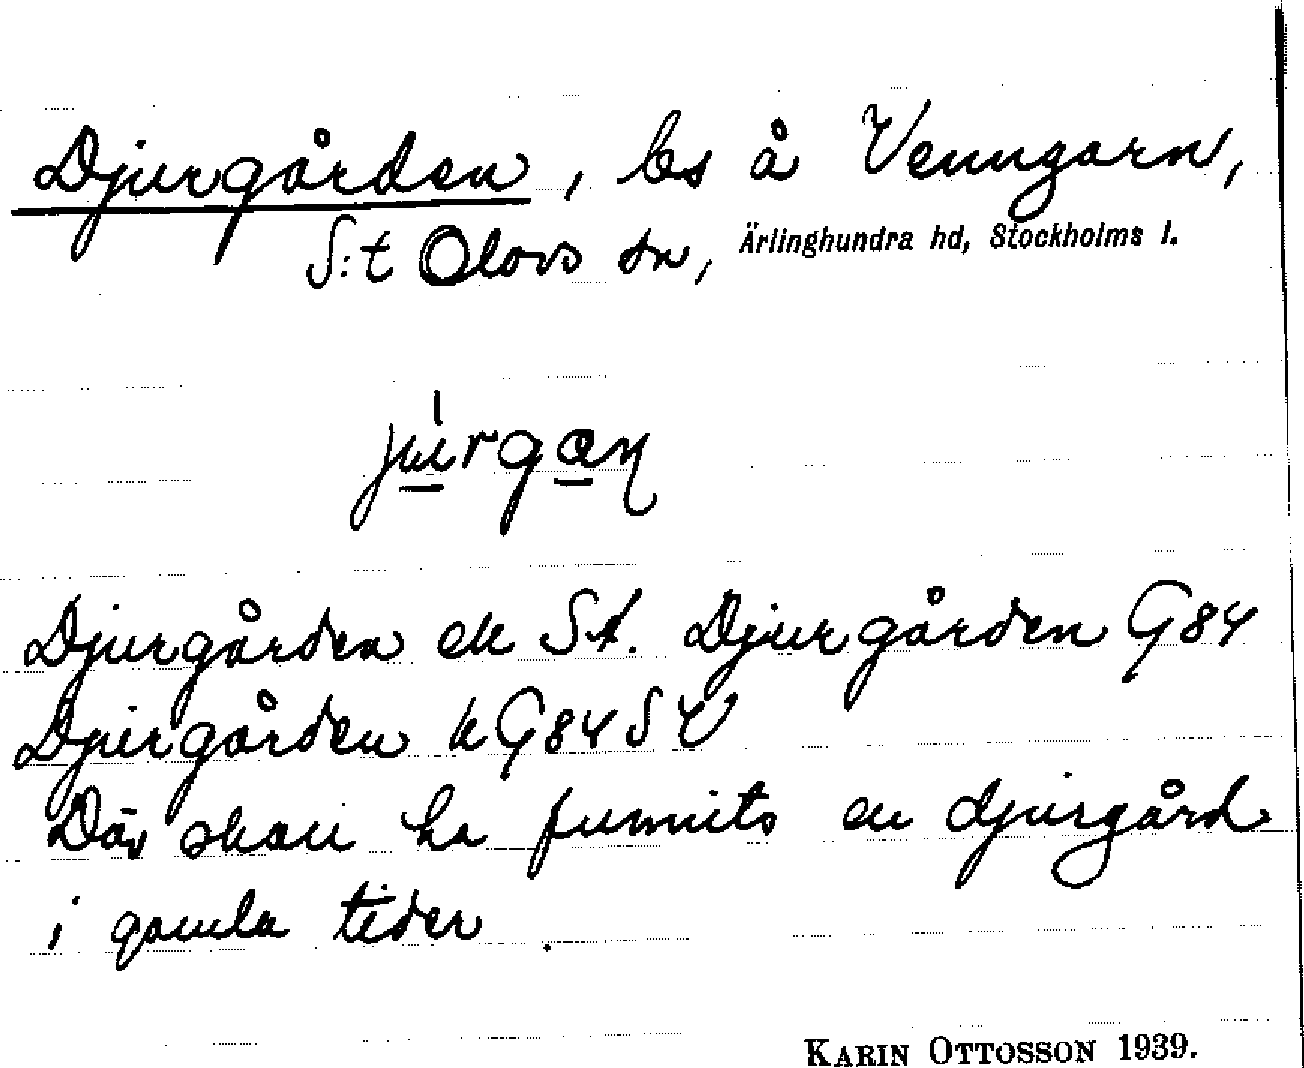 Djurgården, bs å Venngarn,
S:t Olovs sn, Ärlinghundra hd, Stockholms l.
Djurgården ek St. Djurgården G84
Djurgården k G84SV
Där skall ha funnits en djurgård
i gamla tider.
KARIN OTTOSSON 1939.